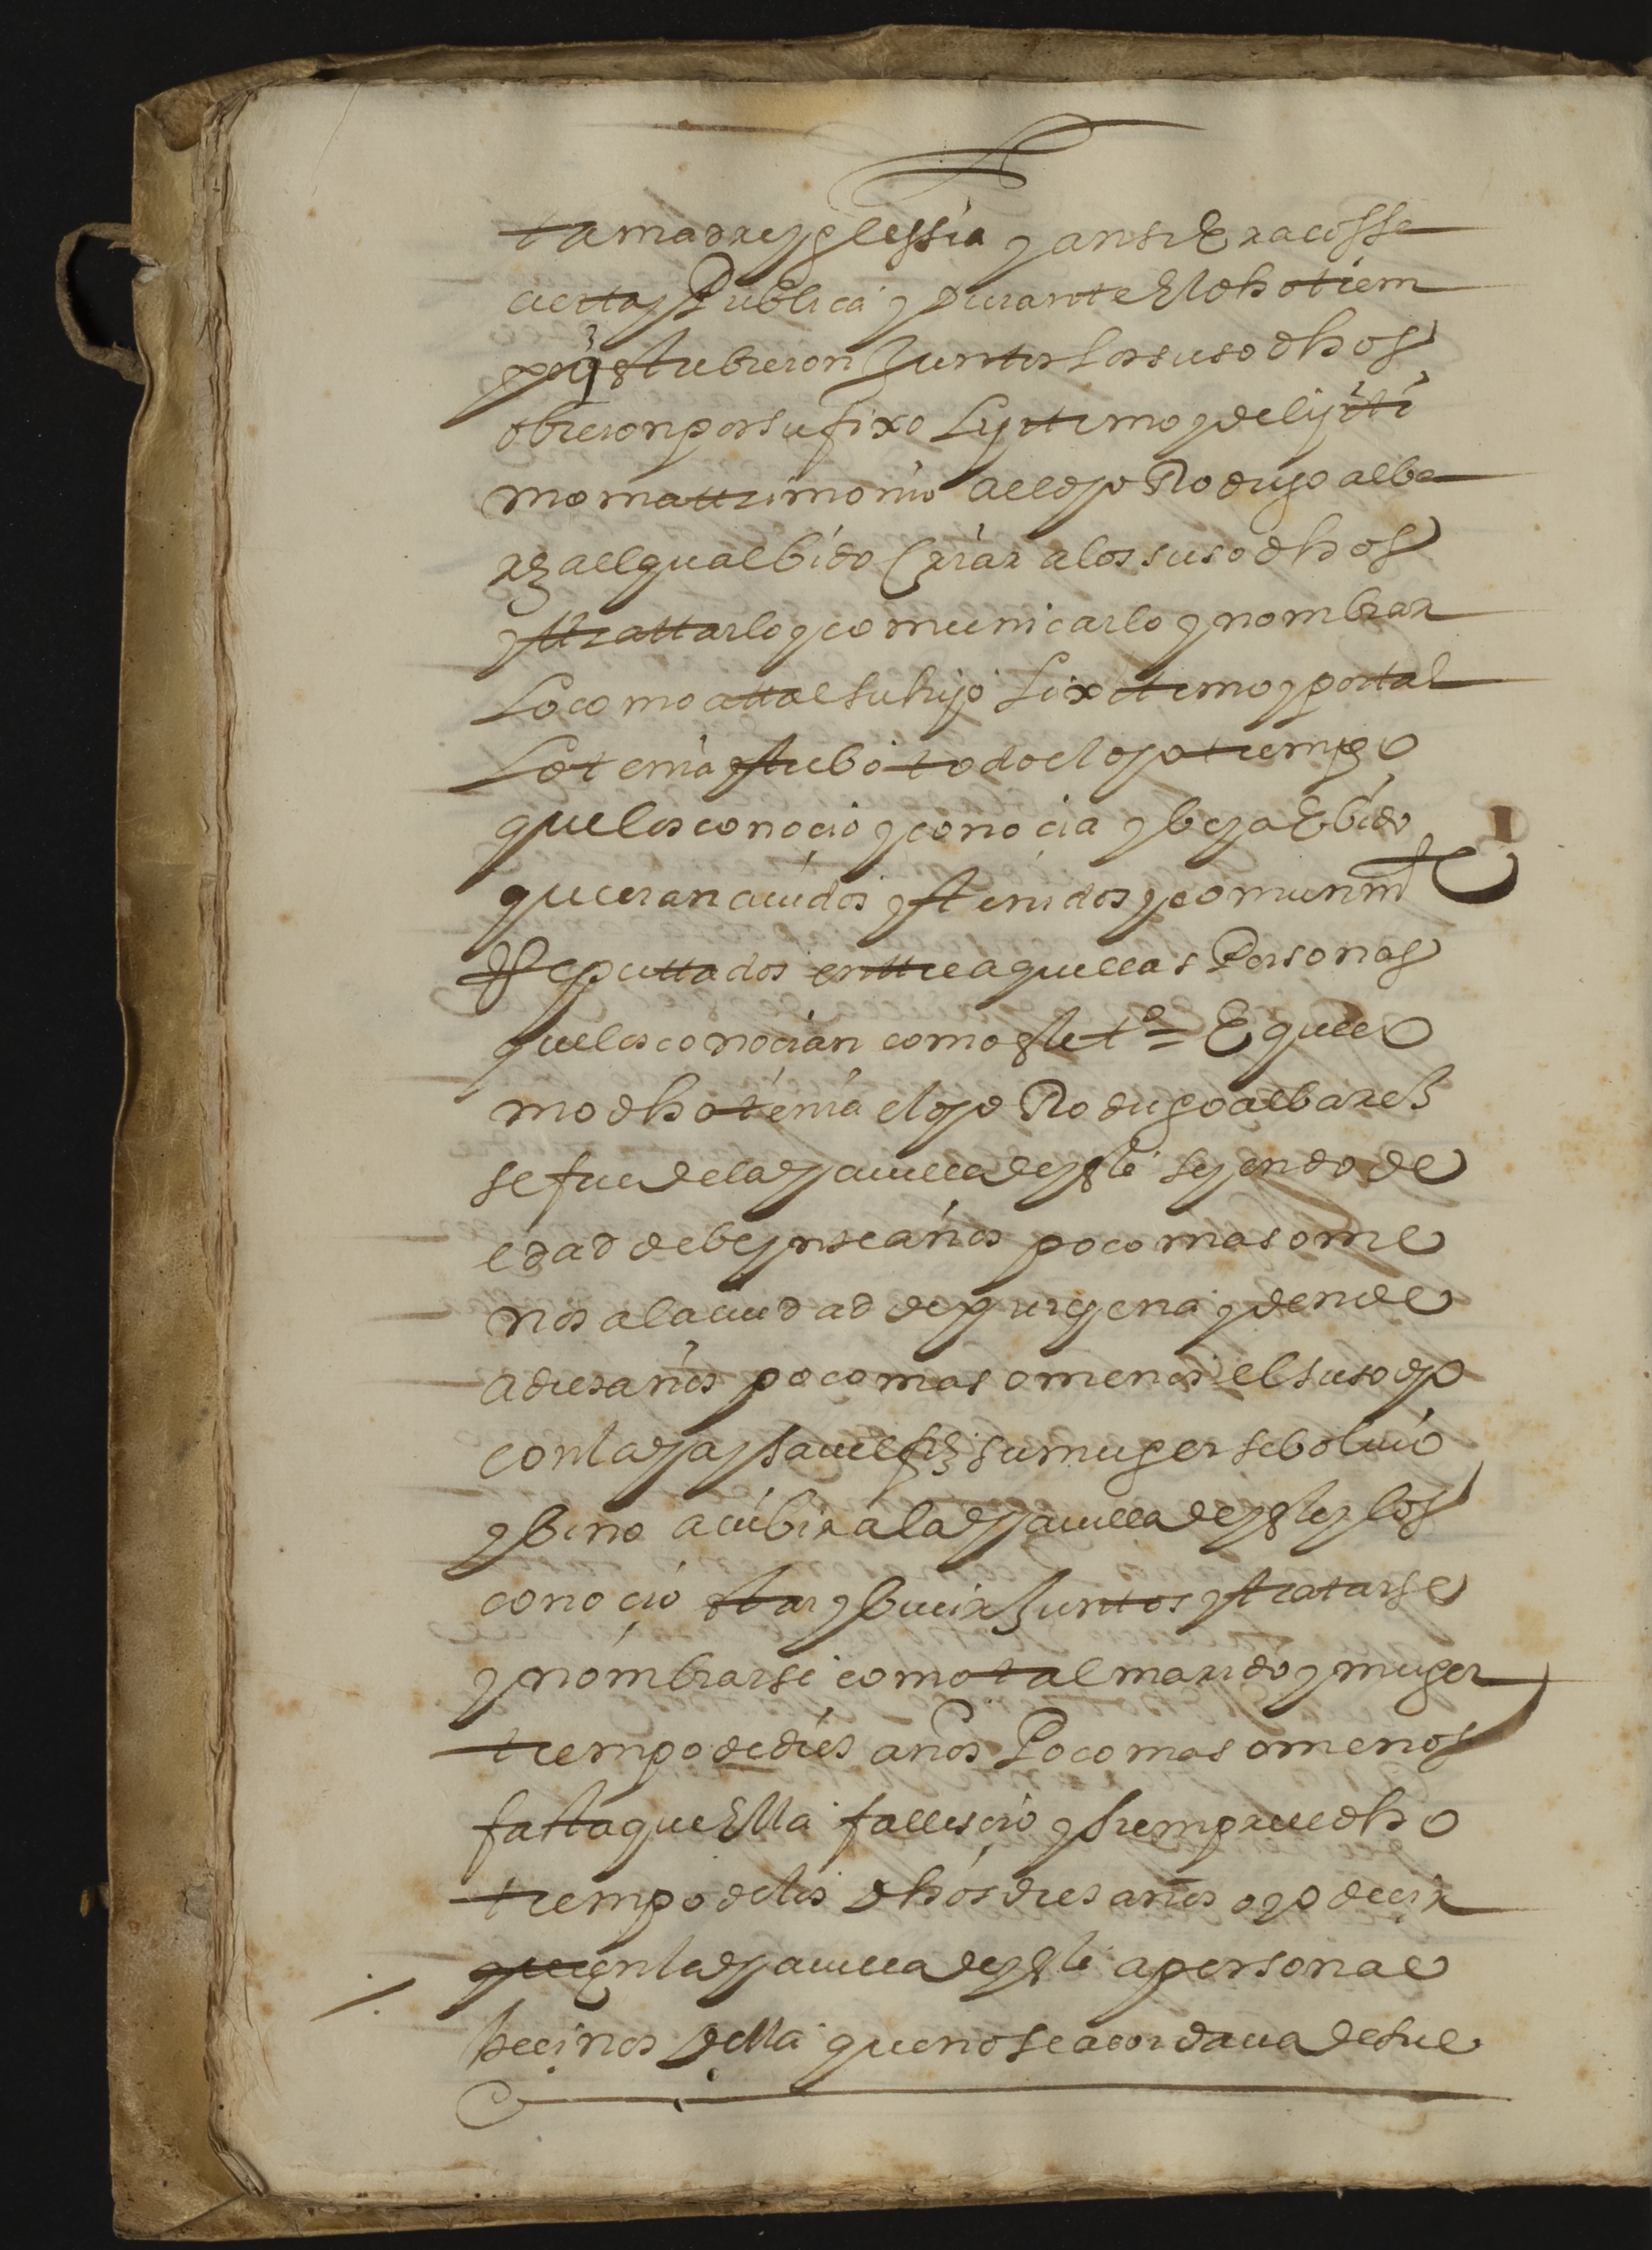 ta madre yglessia y ansi Era cossa
cierta y Publica y Durante El dho tiem
po q̃ estubieron Juntos los susodhos
obieron por su fixo Lyxitimo y de lijiti
mo mattrimonio al dho Rodrigo alba
rez al qual bido Criar a los susodhos
y ttrattarlo y comunicarlo y nombrar
Lo como a ttal su hijo Lixitimo y por tal
Lo tenia y tubo todo el dho tiempo
que los conoçio y conocia y beya E bido
que eran auidos y tenidos y comunmte
Reputtados enttre aquellas Personas
que los conocian como este to = E que el
mo dho tenia el dho Rodrigo albarez
se fue de la dha uilla de yste seyendo de
edad de beynte años poco mas o me
nos a la ciudad de purgena y dende
a dies años poco mas o menos el susodho
con la dha ysauel frz su muger se boluio
y bino a uibir a la dha uilla de yste y los
conoçio star y biuir Juntos y tratarse
y nombrarse como tal marido y muger
tiempo de dies años Poco mas o menos
fasta que Ella fallesçio y siempre el dho
tiempo de los dhos dies años oyo deçir
que en la dha uilla de yste a personas
beçinos Della que no se acordaua de sus